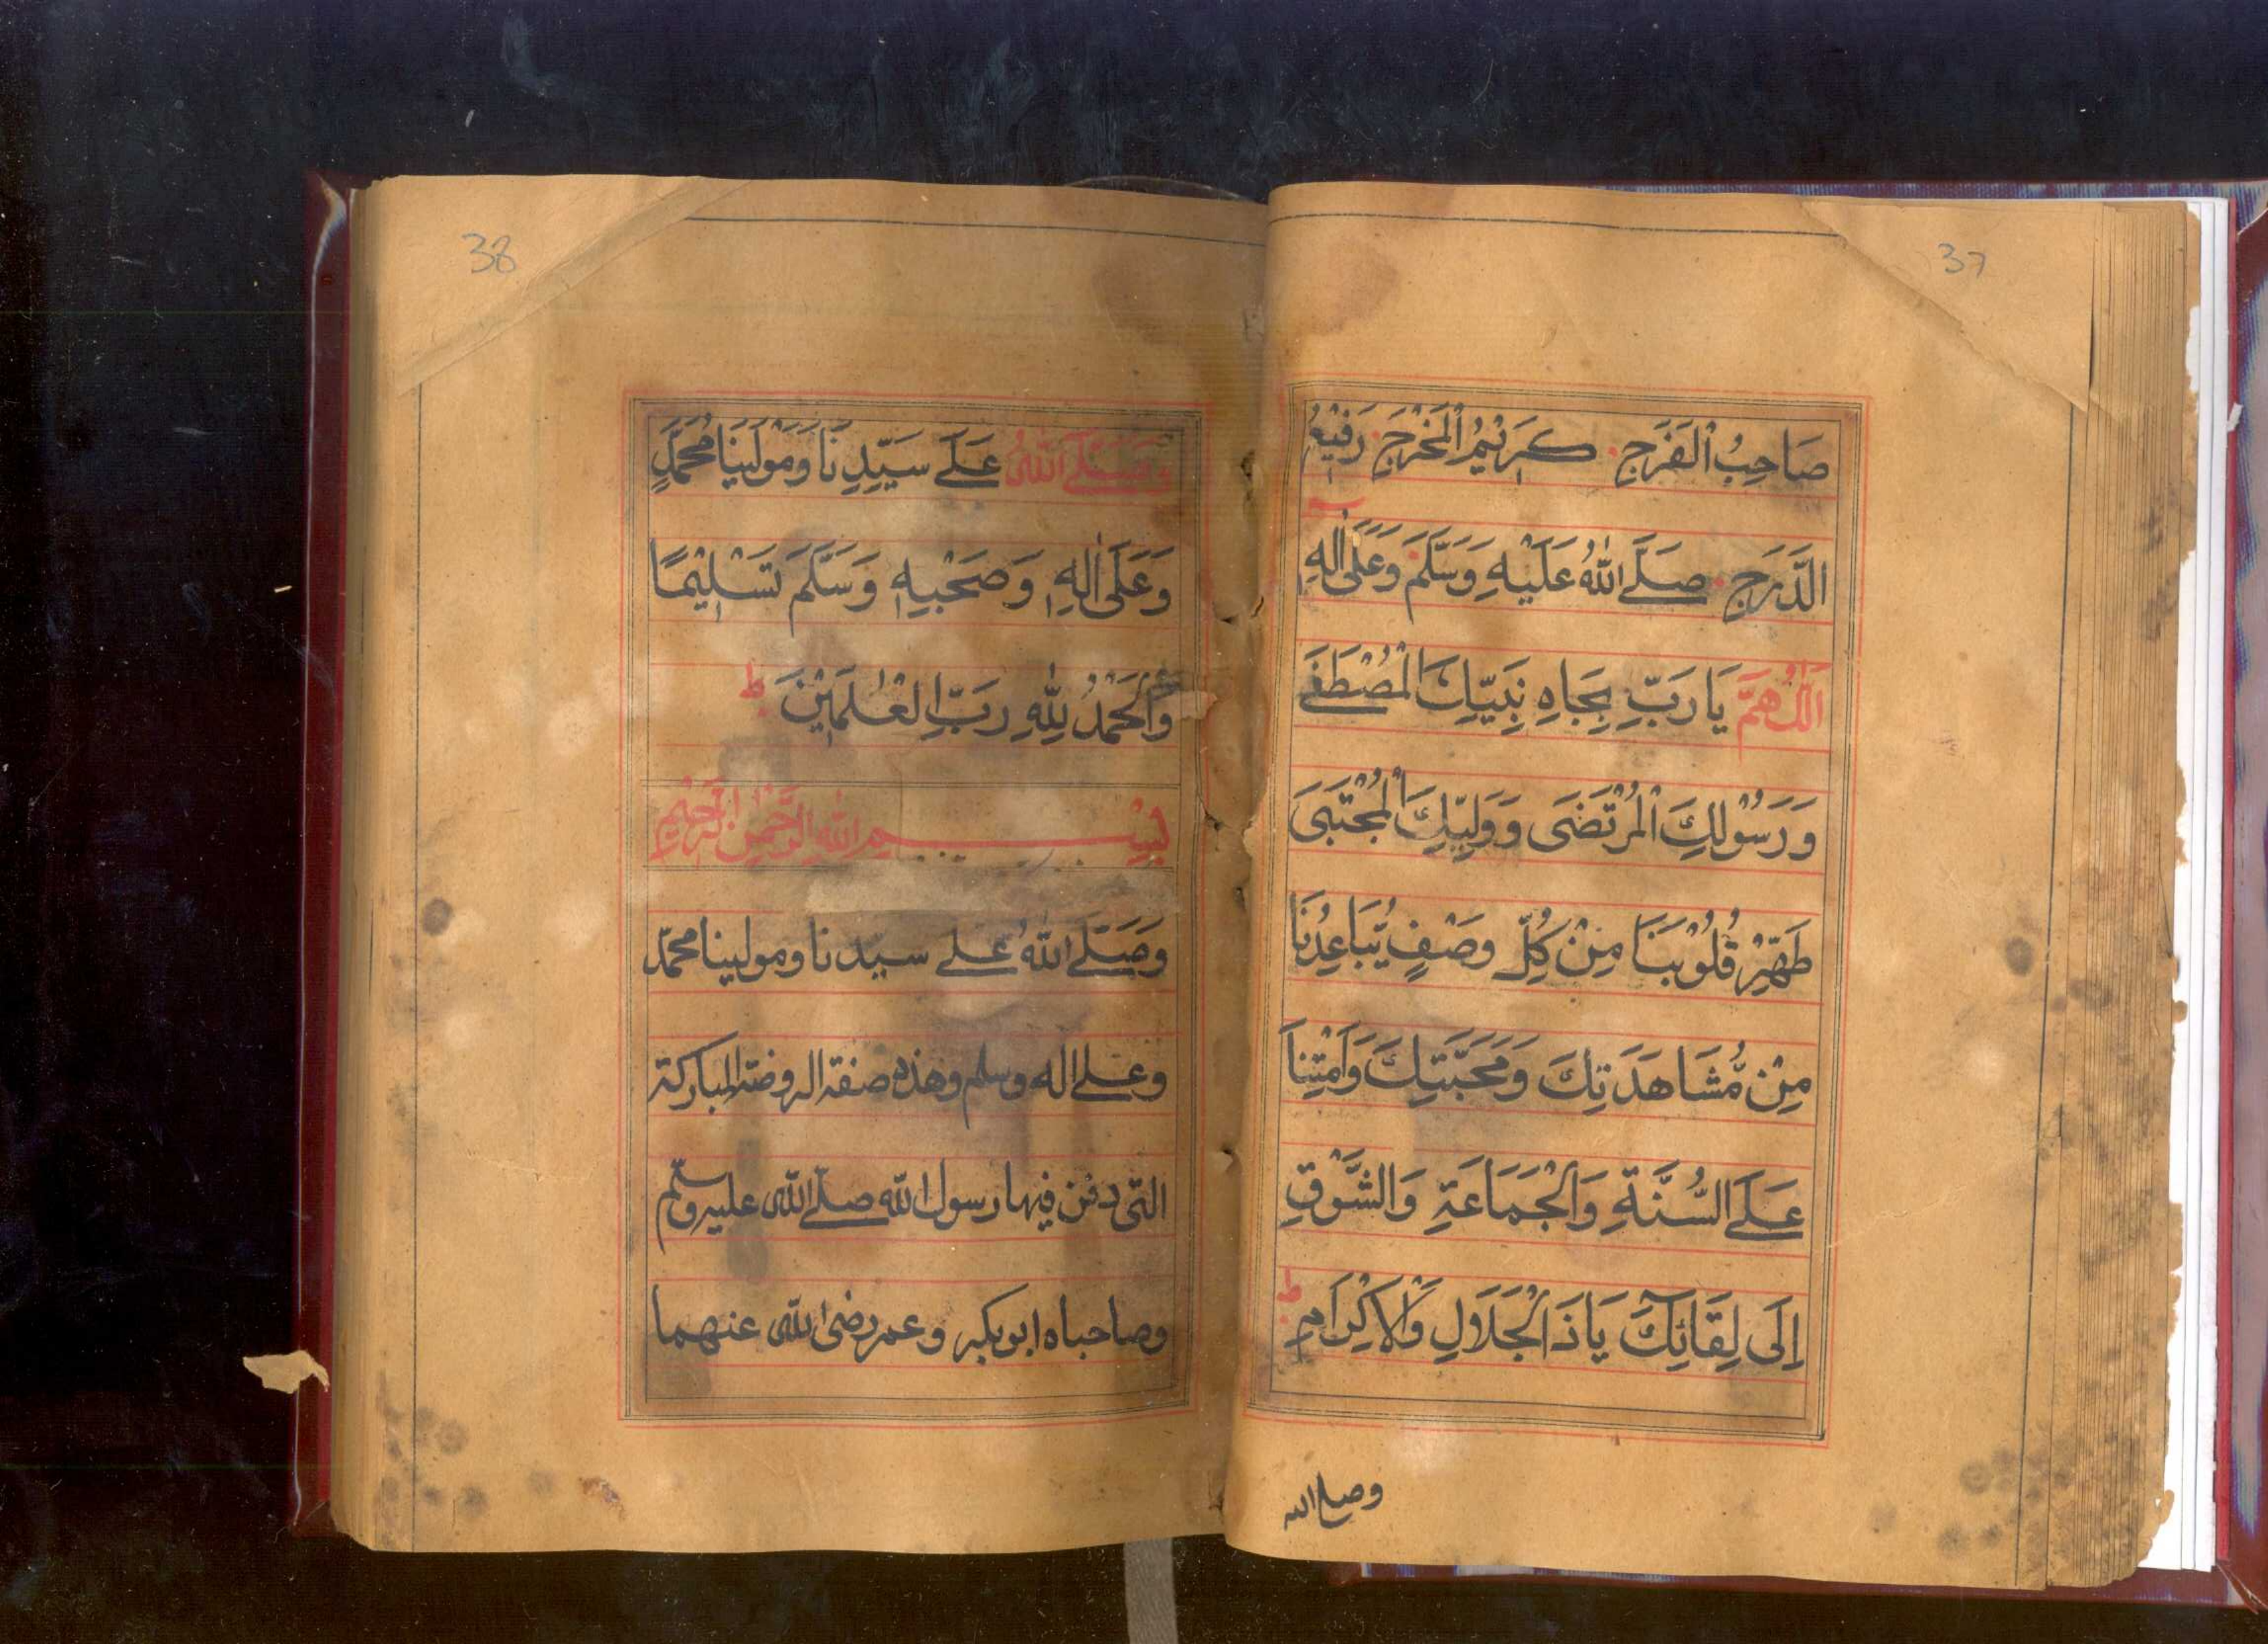 37
صَاحِبُ الْفَرَجِ كَرِيْمُ الْمَخْرَجِ رَفِيْعُ
الدَّرَجِ صَلَّے اللّٰهُ عَلَيْهِ وَسَلَّمَ وَعَلٰى اٰلِهٖ
اَللّٰهُمَّ يَا رَبِّ بِجَاهِ نَبِيِّكَ الْمُصْطَفٰے
وَرَسُوْلِكَ الْمُرْتَضَى وَوَلِيِّكَ الْمُجْتَبَى
طَهِّرْ قُلُوْبَنَا مِنْ كُلِّ وَصْفٍ يُّبَاعِدُنَا
مِنْ مُّشَاهَدَتِكَ وَمَحَبَّتِكَ وَاَمِتْنَا
عَلَے السُّنَّةِ وَالْجَمَاعَةِ وَالشَّوْقِ
اِلَى لِقَائِكَ يَا ذَا الْجَلَالِ وَالْاِكْرَامِ ط
وصلے الله
38
وَصَلَّے اللّٰهُ عَلَے سَيِّدِنَا وَمَوْلٰينَا مُحَمَّدٍ
وَعَلَى اٰلِهٖ وَصَحْبِهٖ وَسَلَّمَ تَسْلِيْمًا
وَالْحَمْدُ لِلّٰهِ رَبِّ الْعٰلَمِيْنَ ط
بِسْمِ اللّٰهِ الرَّحْمٰنِ الرَّحِيْمِ
وَصَلَّے اللّٰهُ علے سيدنا ومولينا محمّد
وعلے اله وسلم وهذه صفة الروضة المباركة
التى دفن فيها رسول الله صلے اللّٰه عليه وسلم
وصاحباه ابو بكر وعمر رضى اللّٰه عنهما